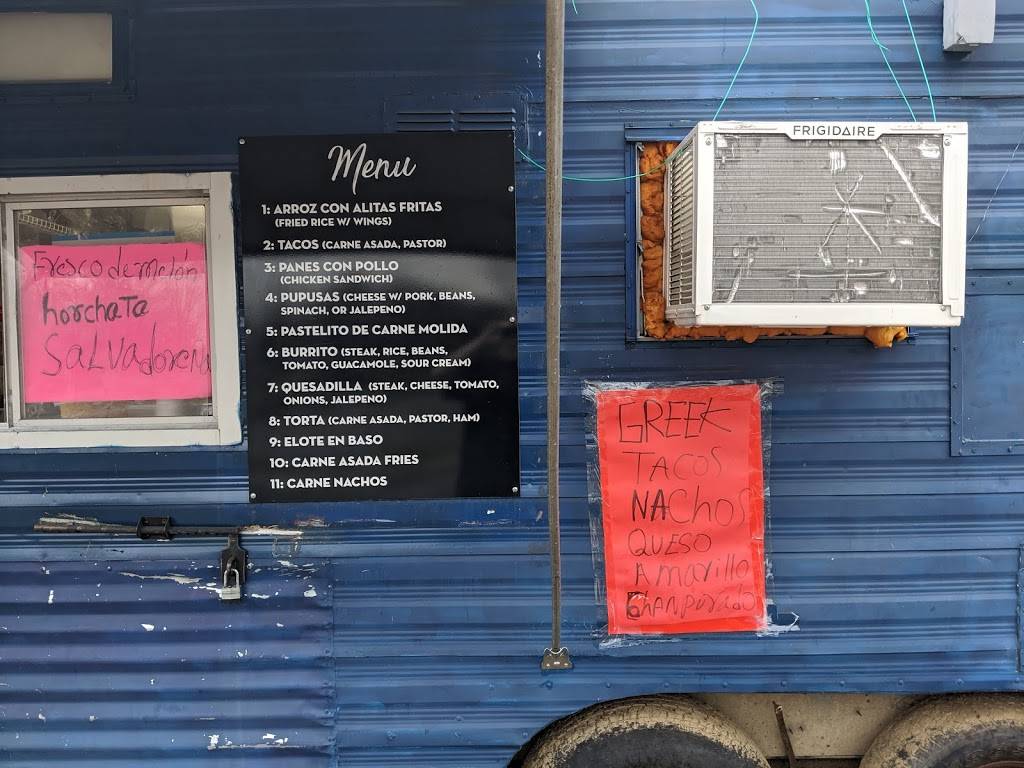 Fresco de melón
horchata
Salvadorena
Menu
1: ARROZ CON ALITAS FRITAS
(FRIED RICE W/ WINGS)
2: TACOS (CARNE ASADA, PASTOR)
3: PANES CON POLLO
(CHICKEN SANDWICH)
4: PUPUSAS (CHEESE W/ PORK, BEANS,
SPINACH, OR JALEPENO)
5: PASTELITO DE CARNE MOLIDA
6: BURRITO (STEAK, RICE, BEANS,
TOMATO, GUACAMOLE, SOUR CREAM)
7: QUESADILLA (STEAK, CHEESE, TOMATO,
ONIONS, JALEPENO)
8: TORTA (CARNE ASADA, PASTOR, HAM)
9: ELOTE EN BASO
10: CARNE ASADA FRIES
11: CARNE NACHOS
FRIGIDAIRE
GREEK
TACOS
NAChOS
QUESO
Amarillo
ChANPURADO